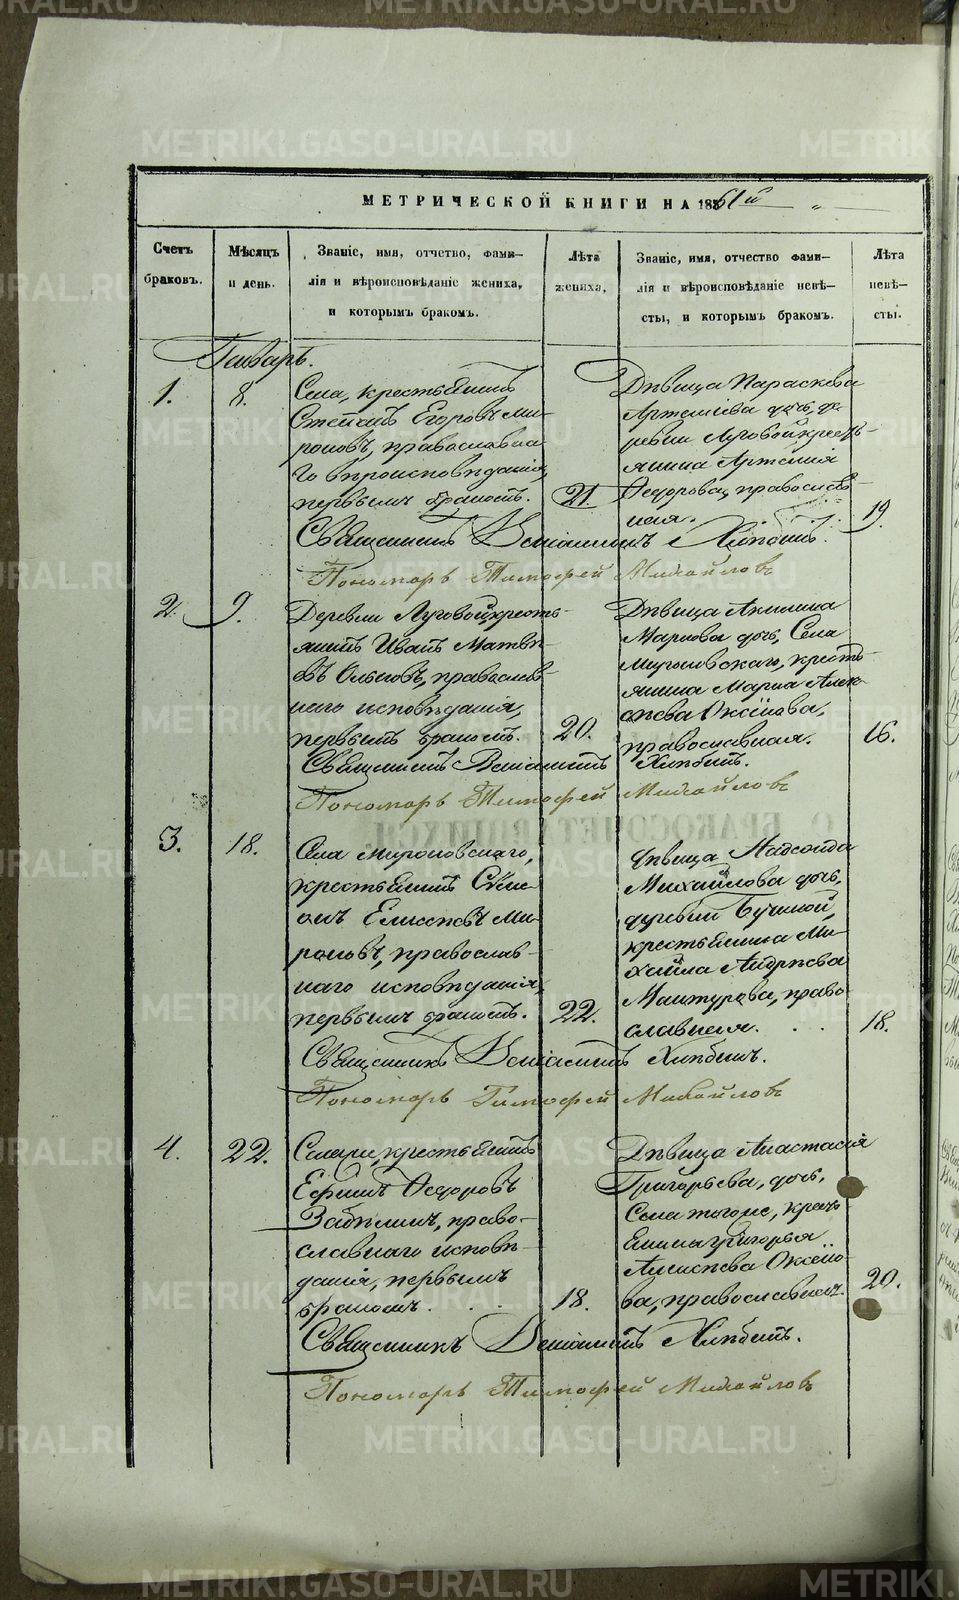 МЕТРИЧЕСКОЙ КНИГИ НА 1861й
Счетъ браковъ.
Мѣсяцъ и день.
Званіе, имя, отчетво, фами-
лія и вѣроисповѣданіе жениха,
и которымъ бракомъ.
Лѣта жениха.
Званіе, имя, отчество фами-
лія и вѣроисповѣданіе невѣ-
сты, и которымъ бракомъ.
Лѣта невѣ-
сты.
Январь.
1.
8.
Села, крестьянинъ
Степанъ Егоровъ Ми-
роновъ, православна-
го вѣроисповѣданія,
первымъ бракомъ.
21.
Дѣвица Параскева
Артеміева дочь, де-
ревни Луговой кресть-
янина Артемія
Ѳедорова, православ-
ная.
19.
Священникъ Веніаминъ Хлѣбинъ.
Пономарь Тимофей Михайловъ
2.
9.
Деревни Луговой кресть-
янинъ Иванъ Матвѣ-
евъ Ольковъ, православ-
наго исповѣданія,
первымъ бракомъ.
20.
Дѣвица Акилина
Маркова дочь, Села
Мироновскаго, кресть-
янина Марка Алек-
сѣева Оксенова,
православная.
16.
Священникъ Веніаминъ Хлѣбинъ.
Пономарь Тимофей Михайловъ
3.
18.
Села Мироновскаго,
крестьянинъ Симе-
онъ Елисеевъ Ми-
роновъ, православ-
наго исповѣданія,
первымъ бракомъ.
22.
Дѣвица
Михайлова дочь,
деревни Бучиной,
крестьянина Ми-
хайла Андреева
Мантурова, право-
славная.
18.
Священникъ Веніаминъ Хлѣбинъ.
Пономарь Тимофей Михайловъ
4.
22.
крестьянинъ
Ефимъ Ѳедоровъ
Забѣлинъ, право-
славнаго исповѣ-
данія, первымъ
бракомъ.
18.
Дѣвица Анастасія
Григорьева, дочь,
Села тогоже, крест-
янина Григорья
Алексѣева Оксено-
ва, православная.
20.
Священникъ Веніаминъ Хлѣбинъ.
Пономарь Тимофей Михайловъ
METRIKI.GASO-URAL.RU